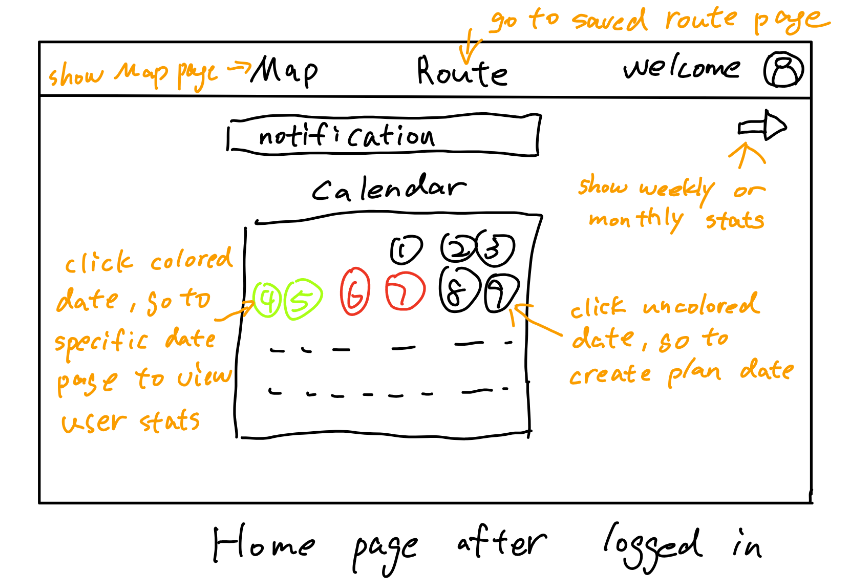 go to saved route page
show Map page Map Route welcome
notification
show weekly or
monthly stats
Calendar
1 2 3
4 5 6 7 8 9
click colored
date, go to
specific date
page to view
user stats
click uncolored
date, go to
create plan date
Home page after logged in